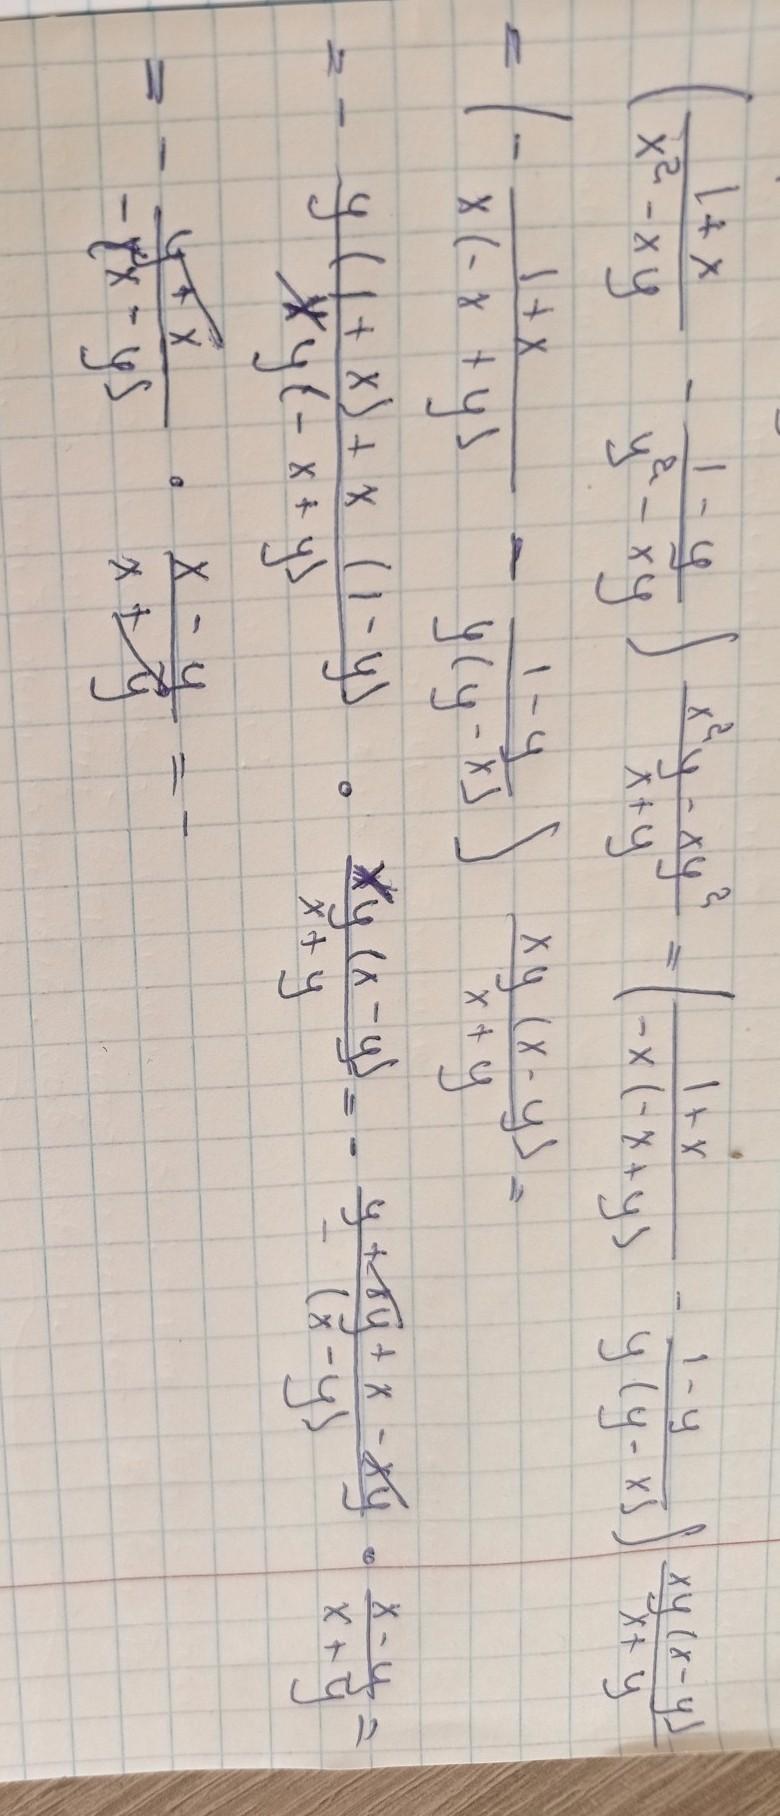 (1+x / x² - xy - 1-y / y² - xy) x²y - xy² / x+y = (1+x / -x(-x+y) - 1-y / y(y-x)) xy(x-y) / x+y
= (- 1+x / x(-x+y) - 1-y / y(y-x)) xy(x-y) / x+y =
= - y(1+x)+x(1-y) / xy(-x+y) · xy(x-y) / x+y = - y+xy+x-xy / -(x-y) · x-y / x+y =
= - y+x / -(x-y) · x-y / x+y = -